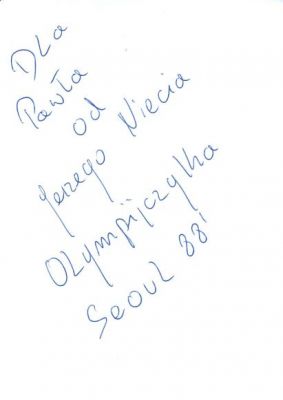 DLA
Pawła
od
Jerzego Niecia
Olympijczylka
Seoul 88'